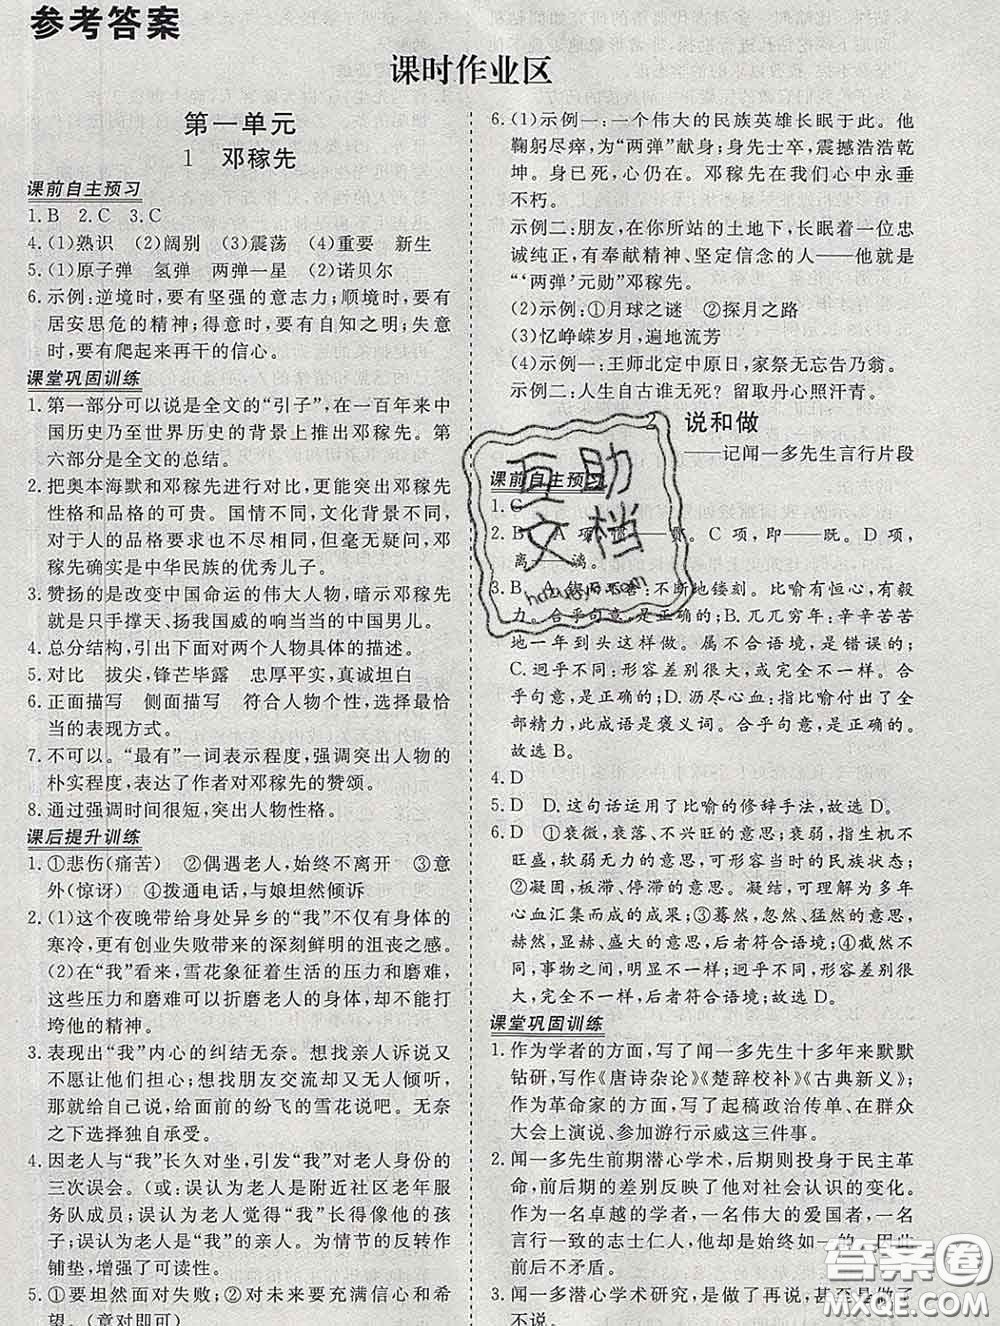 参考答案
课时作业区
第一单元
1 邓稼先
课前自主预习
1.B 2.C 3.C
4.(1)熟识 (2)阔别 (3)震荡 (4)重要 新生
5.(1)原子弹 氢弹 两弹一星 (2)诺贝尔
6.示例:逆境时,要有坚强的意志力;顺境时,要有
居安思危的精神;得意时,要有自知之明;失意
时,要有爬起来再干的信心。
课堂巩固训练
1.第一部分可以说是全文的“引子”,在一百年来中
国历史乃至世界历史的背景上推出邓稼先。第
六部分是全文的总结。
2.把奥本海默和邓稼先进行对比,更能突出邓稼先
性格和品格的可贵。国情不同,文化背景不同,
对于人的品格要求也不尽相同,但毫无疑问,邓
稼先确实是中华民族的优秀儿子。
3.赞扬的是改变中国命运的伟大人物,暗示邓稼先
就是只手撑天、扬我国威的响当当的中国男儿。
4.总分结构,引出下面对两个人物具体的描述。
5.对比 拔尖,锋芒毕露 忠厚平实,真诚坦白
6.正面描写 侧面描写 符合人物个性,选择最恰
当的表现方式。
7.不可以。“最有”一词表示程度,强调突出人物的
朴实程度,表达了作者对邓稼先的赞颂。
8.通过强调时间很短,突出人物性格。
课后提升训练
1.①悲伤(痛苦) ②偶遇老人,始终不离开 ③意
外(惊讶) ④拨通电话,与娘坦然倾诉
2.(1)这个夜晚带给身处异乡的“我”不仅有身体的
寒冷,更有创业失败带来的深刻鲜明的沮丧之感。
(2)在“我”看来,雪花象征着生活的压力和磨难,
这些压力和磨难可以折磨老人的身体,却不能打
垮他的精神。
3.表现出“我”内心的纠结无奈。想找亲人诉说又
不想让其担忧,想找朋友交流却又无人倾听,
那就给自己说,给面前的纷飞的雪花说吧。无奈
之下选择独自承受。
4.因老人与“我”长久对坐,引发“我”对老人身份的
三次误会。(或:误认为老人是附近社区老年服
务队成员;误认为老人觉得“我”长得像他的孩
子;误认为老人是“我”的亲人。为情节的反转作
铺垫,增强了可读性。
5.①要坦然面对失败;②对未来要充满信心和希
望。(意对即可)
6.(1)示例一:一个伟大的民族英雄长眠于此。他
鞠躬尽瘁,为“两弹”献身;身先士卒,震撼浩浩乾
坤。身已死,心仍在。邓稼先在我们心中永垂
不朽。
示例二:朋友,在你所站的土地下,长眠着一位忠
诚纯正,有奉献精神、坚定信念的人——他就是
“‘两弹’元勋”邓稼先。
(2)示例:①月球之谜 ②探月之路
(3)忆峥嵘岁月,遍地流芳
(4)示例一:王师北定中原日,家祭无忘告乃翁。
示例二:人生自古谁无死?留取丹心照汗青。
2 说和做
——记闻一多先生言行片段
课前自主预习
1.C
2.B A项,惯——贯。C项,即——既。D项,
离——漓。
3.B A.锲而不舍:不断地镂刻。比喻有恒心,有毅
力。合乎句意,是正确的;B.兀兀穷年:辛辛苦苦
地一年到头这样做。属不合语境,是错误的;
C.迥乎不同:形容差别很大,或完全不一样。合
乎句意,是正确的;D.沥尽心血:指比喻付出了全
部精力,此成语是褒义词。合乎句意,是正确的。
故选B。
4.D
5.D D.这句话运用了比喻的修辞手法,故选D。
6.D ①衰微,衰落、不兴旺的意思;衰弱,指生机不
旺盛,软弱无力的意思,可形容当时的民族状态;
②凝固,板滞、停滞的意思。凝结,可理解为多年
心血汇集而成的成果;③蓦然,忽然、猛然的意思,
赫然,显赫、盛大的意思,后者符合语境;④截然
不同,事物之间,明显不一样;迥乎不同,差别很大,
完全不一样,后者符合语境;故选D。
课堂巩固训练
1.作为学者的方面,写了闻一多先生十多年来默默
钻研,写作《唐诗杂论》《楚辞校补》《古典新义》;
作为革命家的方面,写了起稿政治传单、在群众
大会上演说、参加游行示威这三件事。
2.闻一多先生前期潜心学术,后期则投身于民主革
命,前后期的差别反映了他对社会认识的变化。
作为一名卓越的学者,一名伟大的爱国者,一名
言行一致的志士仁人,他却是始终如一的,因此
前后不矛盾。
3.闻一多潜心学术研究,是做了再说,甚至是做了
不说。
互助
文档
hazuoye.com
答案圈
MXQE.COM